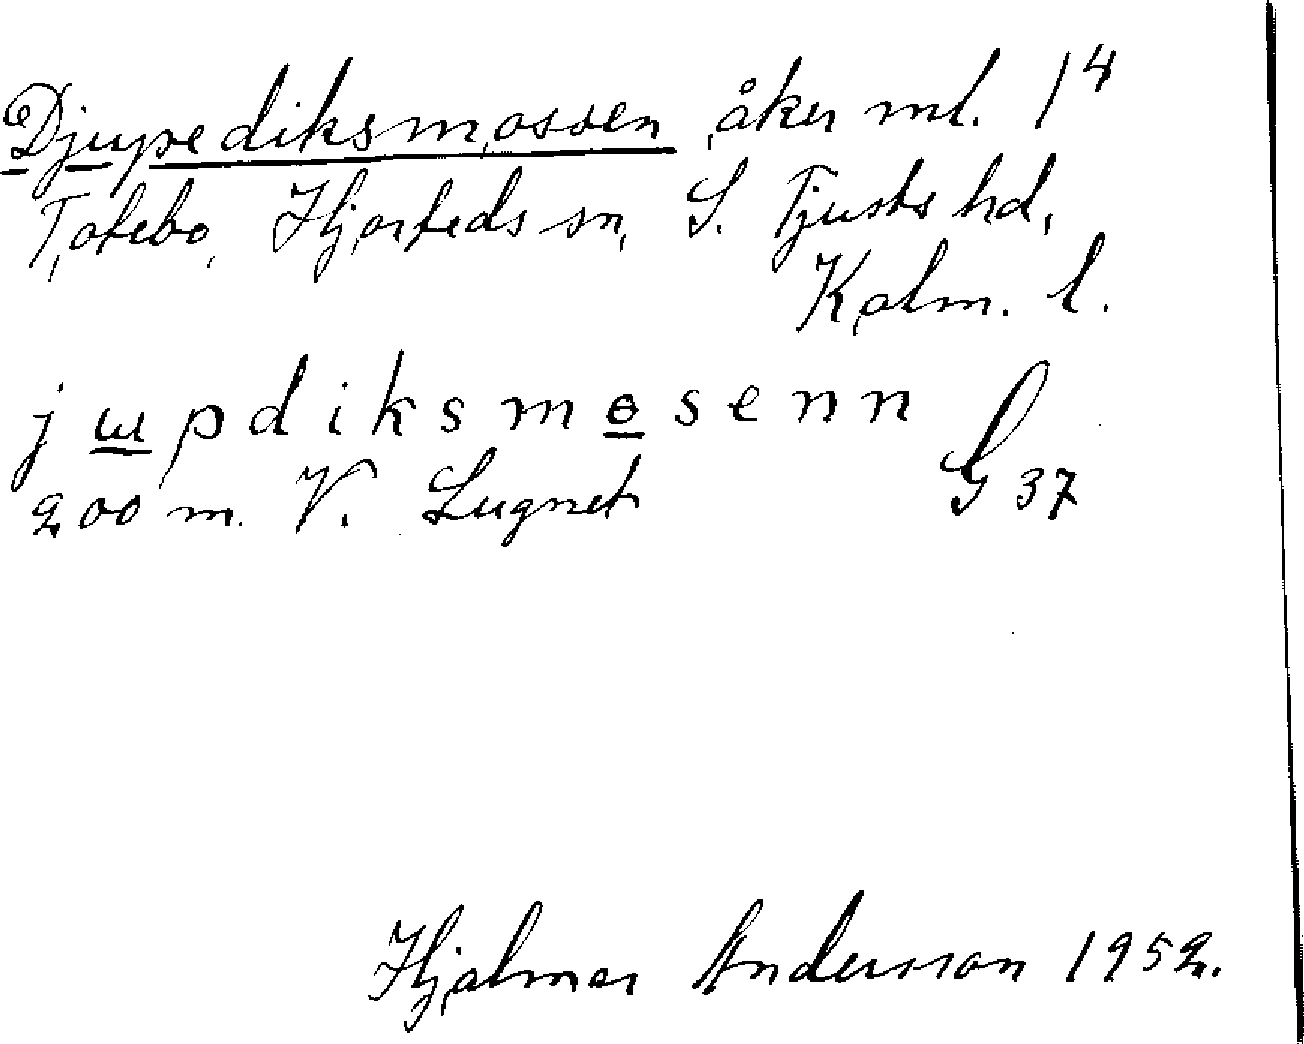 Djupediksmossen åker ml. 1⁴
Totebo, Hjorteds sn, S. Tjusts hd,
Kalm. l.
j ɯ p d i k s m ɵ s e n n
G 37
200 m. V. Lugnet
Hjalmar Andersson 1952.